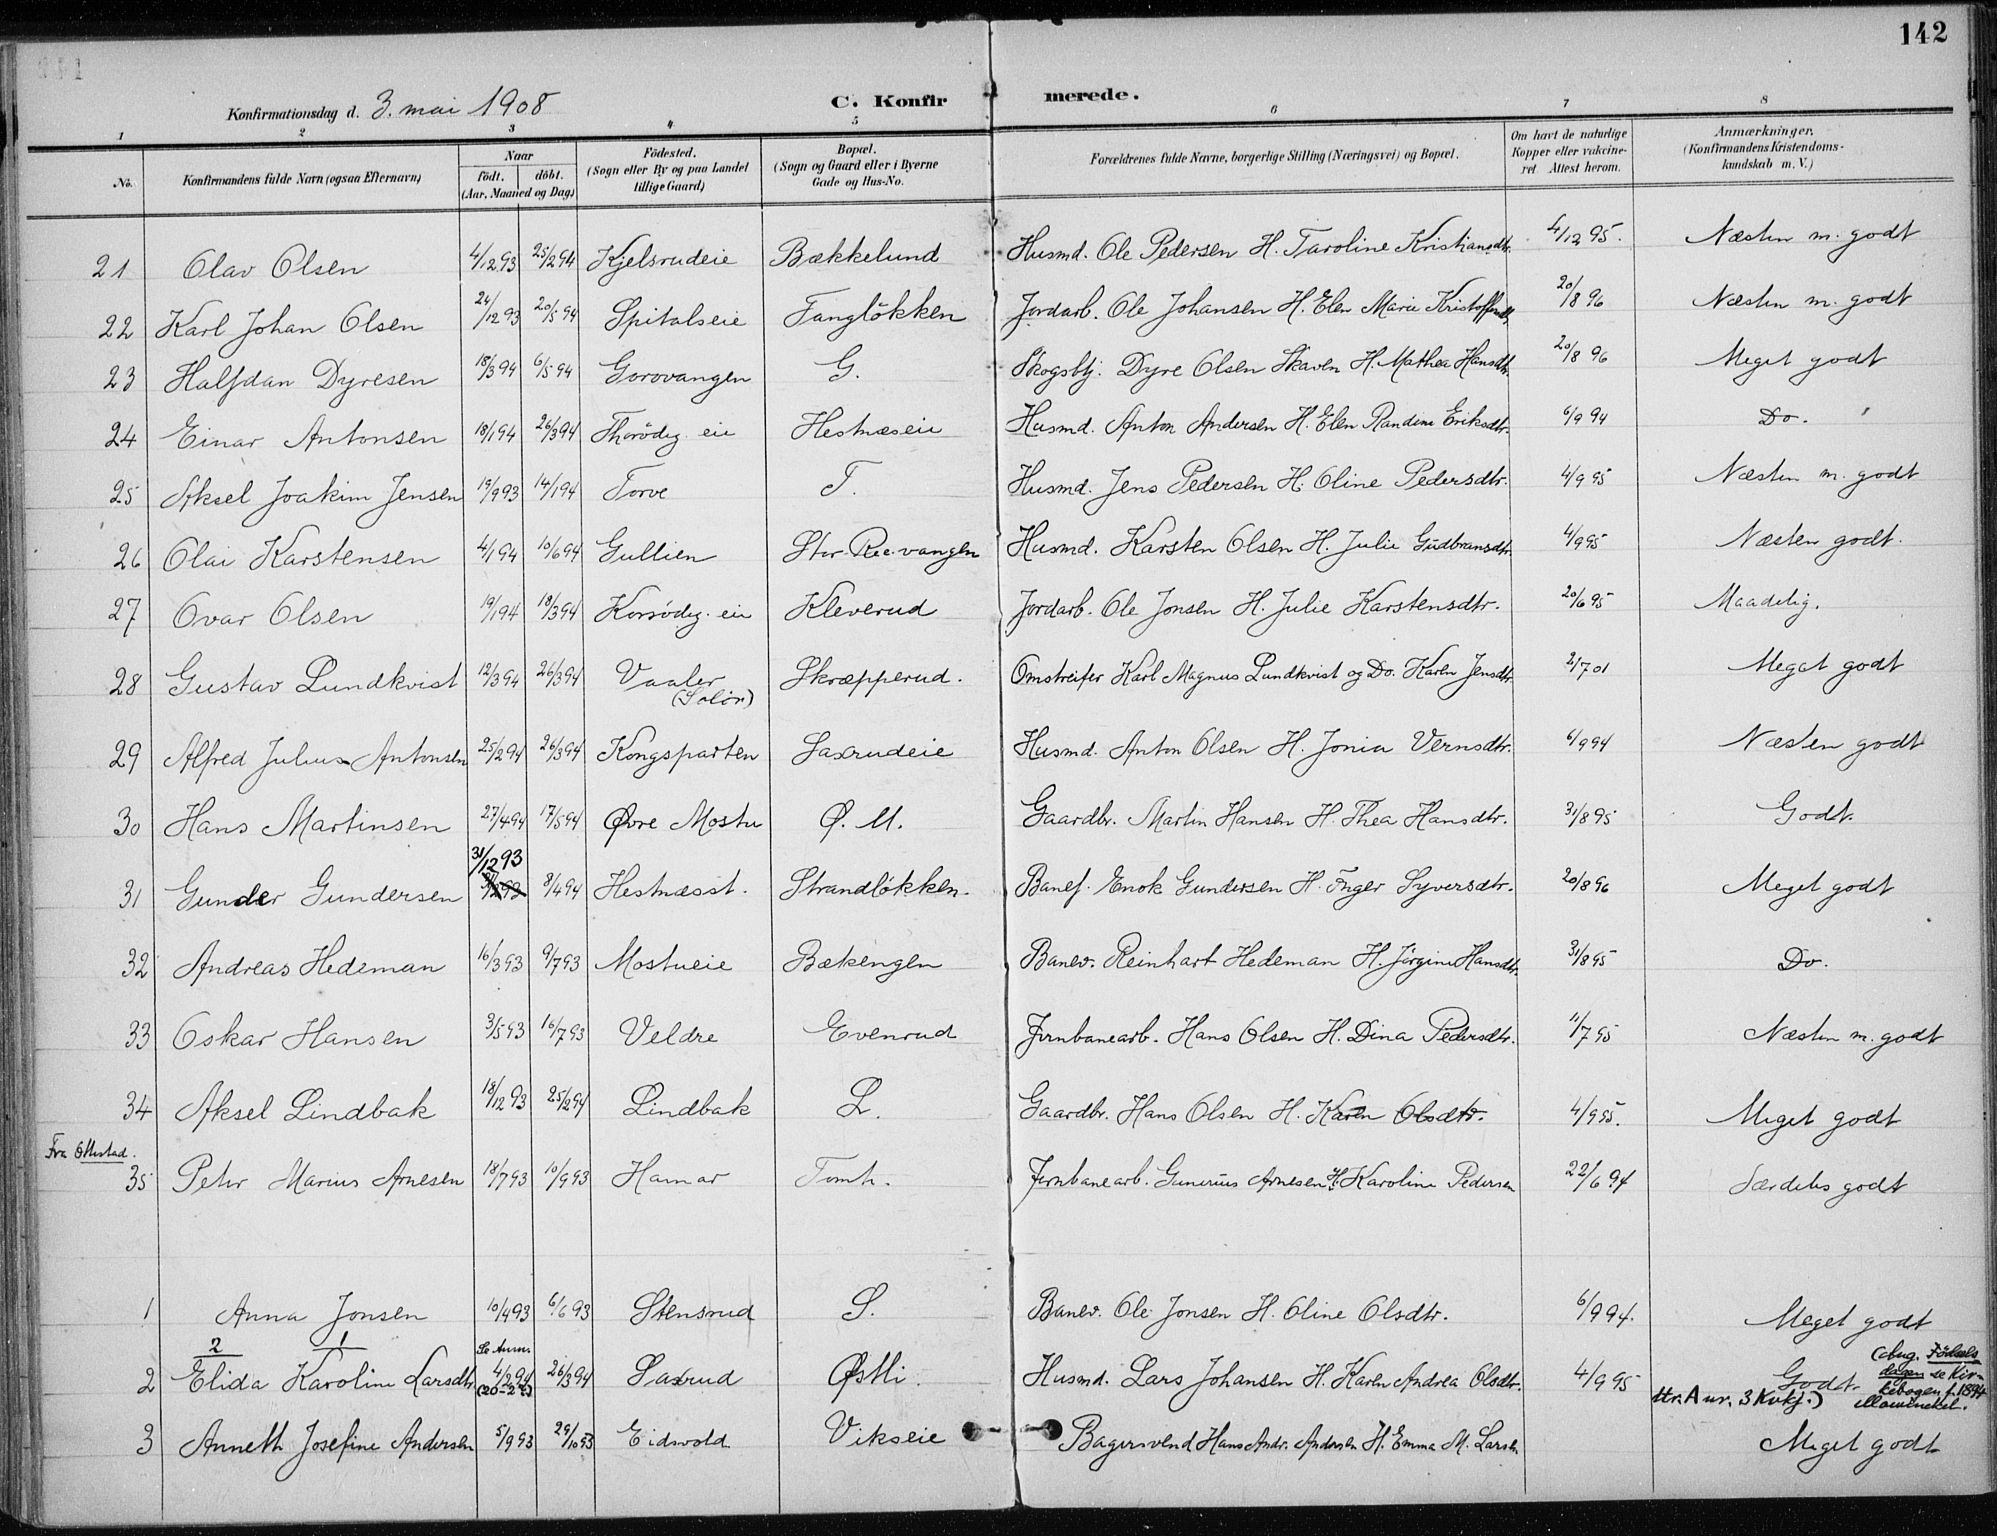 142
Konfirmationsdag d. 3. mai 1908 C. Konfirmerede.
1 2 3 4 5 6 7 8
No. Konfirmandens fulde Navn (ogsaa Efternavn) Naar født. døbt. (Aar, Maaned og Dag) Fødested. (Sogn eller By og paa Landet tillige Gaard) Bopæl. (Sogn og Gaard eller i Byerne Gade og Hus-No. Forældrenes fulde Navne, borgerlige Stilling (Næringsvei) og Bopæl. Om havt de naturlige Kopper eller vaccineret. Attest herom. Anmærkninger. (Konfirmandens Kristendomskundskab m. V.)
21 Olav Olsen 4/12 93 25/2 94 Kjelsrudeie Bækkelund Husmd. Ole Pedersen H. Taroline Kristiansdtr. 4/12 95. Næsten m. godt
22 Karl Johan Olsen 24/12 93 20/5 94 Spitalseie Fangløkken Jordarb. Ole Johansen H. Elen Marie Kristoffersdtr. 20/8 96 Næsten m. godt
23 Halfdan Dyresen 18/3 94 6/5 94 Gorovangen G. Skogsbtj. Dyre Olsen Skaven H. Mathea Hansdtr. 20/8 96 Meget godt
24 Einar Antonsen 18/1 94 26/3 94 Thorødeg. eie Hestnæseie Husmd. Anton Andersen H. Elen Randine Eriksdtr. 6/9 94 Do.
25 Aksel Joakim Jensen 19/9 93 14/1 94 Torve T. Husmd. Jens Pedersen H. Oline Pedersdtr. 4/9 95 Næsten m. godt
26 Olai Karstensen 4/1 94 10/6 94 Gullien Stor-Ree-vangen Husmd. Karsten Olsen H. Julie Gudbransdtr. 4/9 95 Næsten godt.
27 Ovar Olsen 19/1 94 18/3 94 Korsødeg. eie Kleverud Jordarb. Ole Jonsen H. Julie Karstensdtr. 20/6 95 Maadelig.
28 Gustav Lundkvist 12/3 94 26/3 94 Vaaler (Solør) Skræpperud. Omstreifer Karl Magnus Lundkvist og Do. Karen Jensdtr. 2/7 01 Meget godt
29 Alfred Julius Antonsen 25/2 94 26/3 94 Kongsparten Saxrudeie Husmd. Anton Olsen H. Jonia Vernsdtr. 6/9 94 Næsten godt
30 Hans Martinsen 27/4 94 17/5 94 Øvre Mostu Ø. M. Gaardbr. Martin Hansen H. Thea Hansdtr. 31/8 95 Godt.
31 Gunder Gundersen 31/12 93 8/4 94 Hestnæsst. Strandløkken. Banef. Enok Gundersen H. Inger Syversdtr. 20/8 96 Meget godt
32 Andreas Hedeman 16/3 93 9/7 93 Mostueie Bækengen Banev. Reinhart Hedeman H. Jørgine Hansdtr. 31/8 95 Do.
33 Oskar Hansen 3/5 93 16/7 93 Veldre Evenrud Jernbanearb. Hans Olsen H. Dina Pedersdtr. 11/7 95 Næsten m. godt
34 Aksel Lindbak 18/12 93 25/2 94 Lindbak L. Gaardbr. Hans Olsen H. Karen Olsdtr. 4/9 95. Meget godt
Fra Ottestad.
35 Peter Marius Arnesen 18/7 93 10/9 93 Hamar Tomt. Jernbanearb. Gunerius Arnesen H. Karoline Pedersen 22/6 94 Særdeles godt
1 Anna Jonsen 10/4 93 6/6 93 Stensrud S. Banev. Ole Jonsen H. Oline Olsdtr. 6/9 94. Meget godt
2 1 Se Anm.
2 Elida Karoline Larsdtr 4/2 94 (20-2?) 26/3 94 Saxrud Østli Husmd. Lars Johansen H. Karen Andrea Olsdtr. 4/9 95 Godt. (ang. Fødselsdagen se Kirkebogen f. 1894
3 Anneth Josefine Andersen 5/9 93 29/10 93 Eidsvold Vikseie Bagersvend Hans Andr. Andersen H. Emma M. Larsen Meget godt